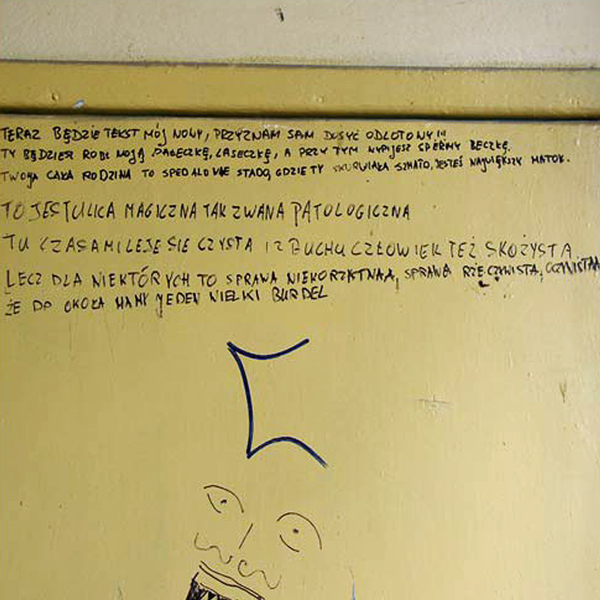 TERAZ BĘDZIE TEKST MÓJ NOWY, PRZYZNAM SAM DOSYĆ ODLOTOWY!!!
TY BĘDZIESZ ROBIŁ MOJĄ PAŁECZKĘ, LASECZKĘ, A PRZY TYM WYPIJESZ SPERMY BECZKĘ.
TWOJA CAŁA RODZINA TO SPEDALONE STADO, GDZIE TY SKURWIAŁA SZMATO, JESTEŚ NAJWIĘKSZY MATOŁ.
TO JEST ULICA MAGICZNA TAK ZWANA PATOLOGICZNA
TU CZASAMI LEJE SIĘ CZYSTA I Z BUCHU CZŁOWIEK TEŻ SKOŻYSTA
LECZ DLA NIEKTÓRYCH TO SPRAWA NIEKORZYSTNAA, SPRAWA RZECZYWISTA, OCZYWISTAA
ŻE DO OKOŁA MAMY JEDEN WIELKI BURDEL